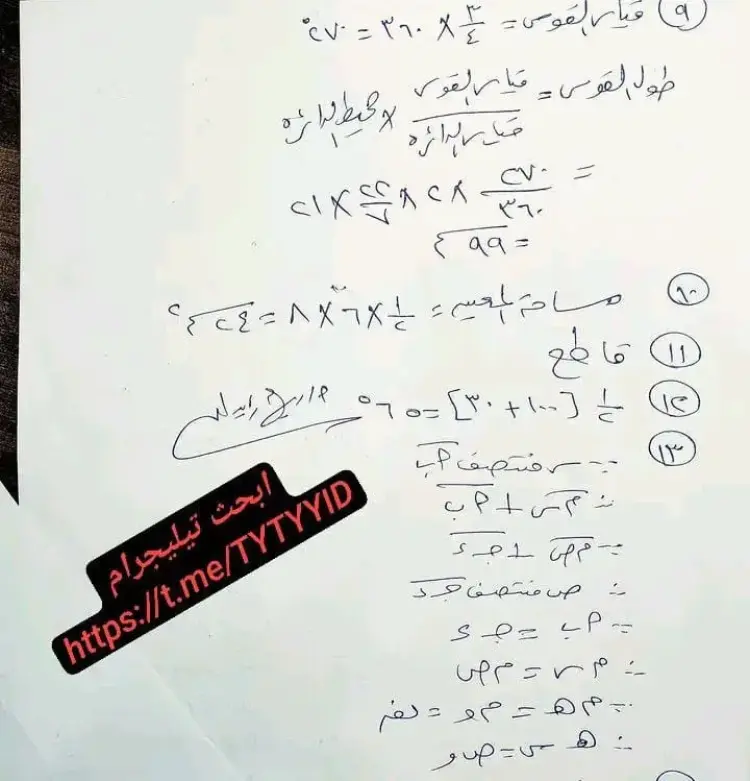 ٩ قياس القوس = ٣/٤ × ٣٦٠ = ٢٧٠°
طول القوس = قياس القوس / قياس الدائرة × محيط الدائرة
= ٢٧٠/٣٦٠ × ٢ × ٢٢/٧ × ٢١
= ٩٩ م
١٠ مساحة المعين = ١/٢ × ٦ × ٨ = ٢٤ م٢
١١ قاطع
١٢ ١/٢ [١٠٠ + ٣٠] = ٦٥°
١٣ ∵ س منتصف أب
∴ م س ⊥ أ ب
∵ م ص ⊥ ج د
∴ ص منتصف ج د
∵ أ ب = ج د
∴ م س = م ص
∵ م هـ = م و = نق
∴ هـ س = ص و
ابحث تيليجرام
https://t.me/TYTYYID